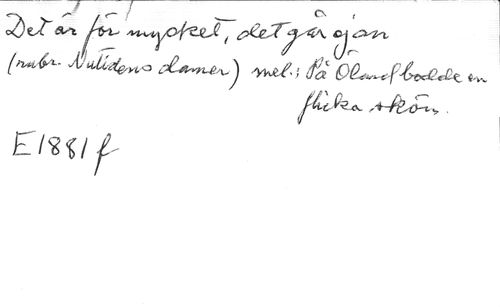 Det är för mycket, det går ej an
(rubr. Nutidens damer) mel.: På Öland bodde en
flicka skön.
E1881f